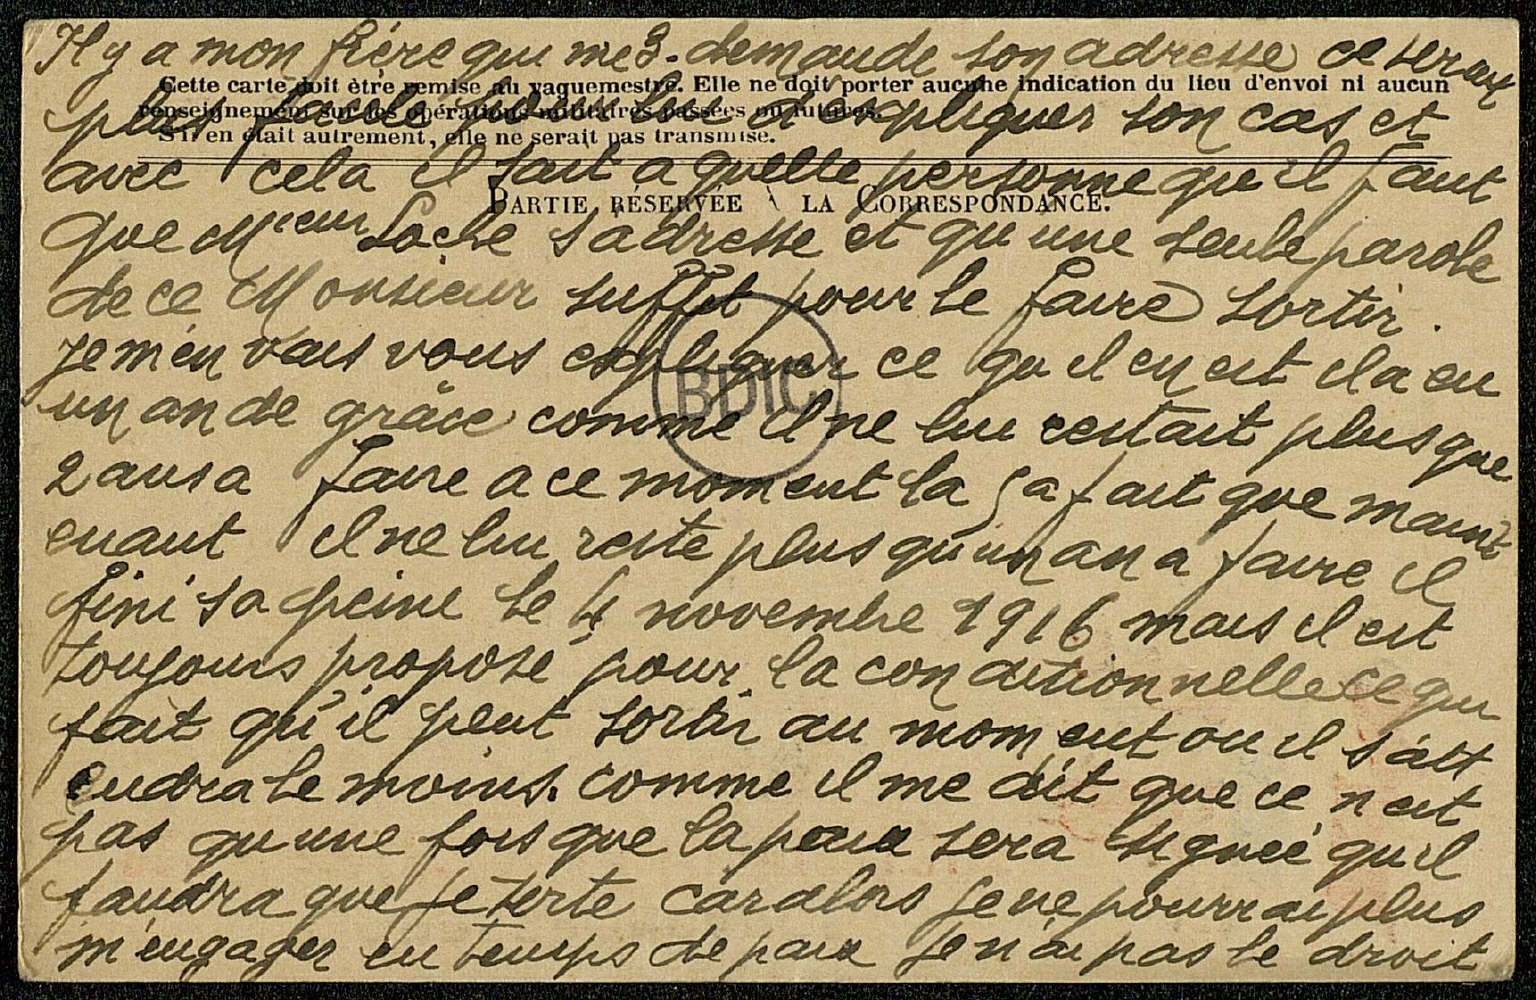 Il y a mon frère qui me 3. demande son adresse ce serait
Cette carte doit être remise au vaguemestre. Elle ne doit porter aucune indication du lieu d'envoi ni aucun
renseignement sur les opérations militaires passées ou futures.
S'il en était autrement, elle ne serait pas transmise.
plus facile pour lui a expliquer son cas et
avec cela il sait a quelle personne qu'il faut
PARTIE RÉSERVÉE A LA CORRESPONDANCE.
que Mrieur Loche s'adresse et qu'une seule parole
de ce Monsieur suffit pour le faire sortir.
Je m'en vais vous expliquer ce qu il en est il a eu
BDIC
un an de grâce comme il ne lui restait plus que
2 ans a faire a ce moment la ça fait que maint
enant il ne lui reste plus qu'un an a faire il
fini sa peine le 4 novembre 1916 mais il est
toujours proposé pour la conditionnelle ce qui
fait qu'il peut sortir au moment ou il s'att
endra le moins. comme il me dit que ce n est
pas qu une fois que la paix sera signée qu il
faudra que je sorte car alors je ne pourrai plus
m'engager en temps de paix je n'ai pas le droit